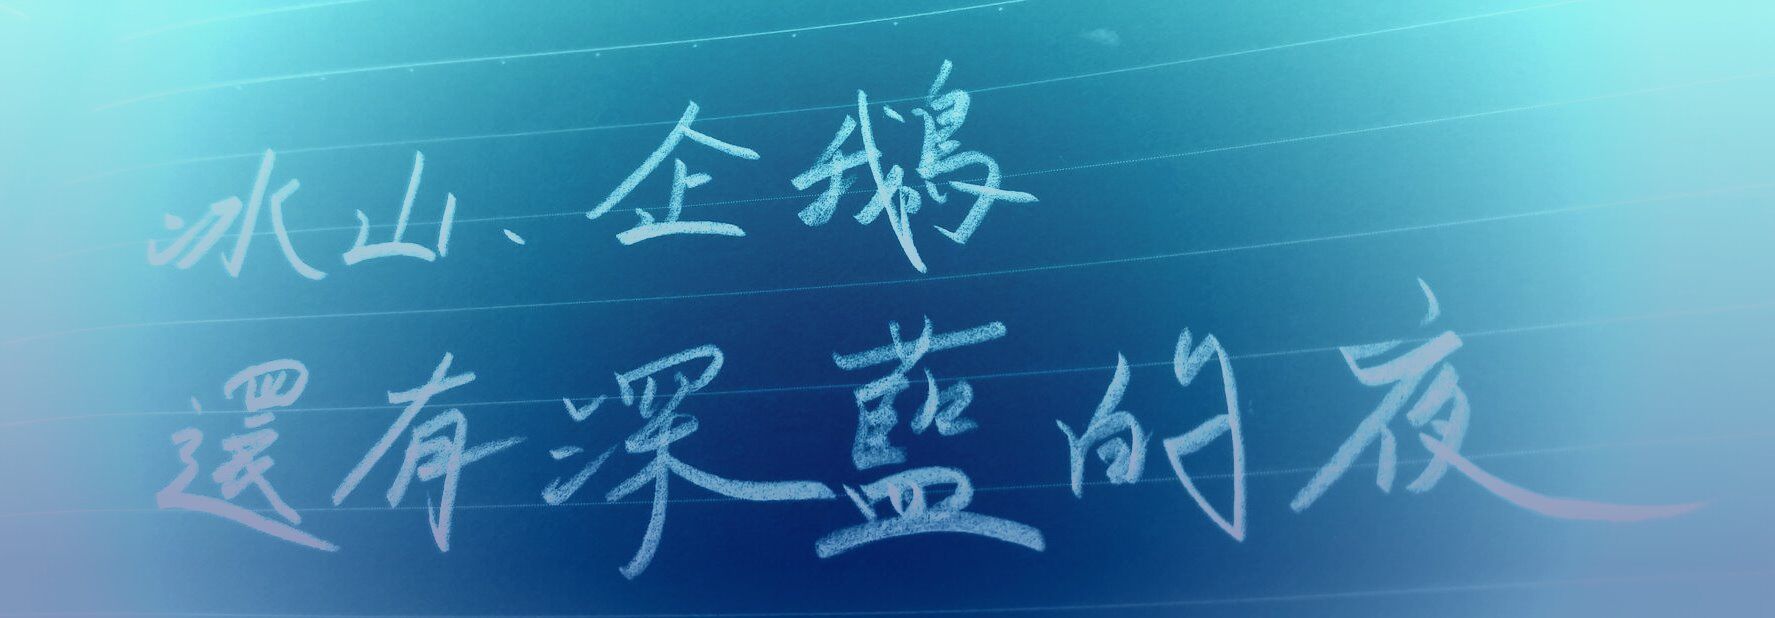 冰山、企鵝
還有深藍的夜